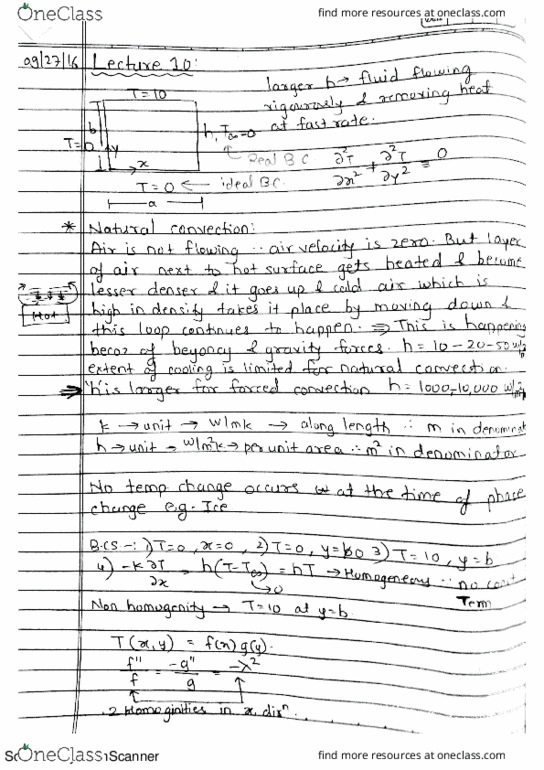 OneClass
find more resources at oneclass.com
09/27/16 Lecture 10:
T=10
larger h → fluid flowing
rigourously & removing heat
at fast rate.
b
h, T∞=0
T=0
y
x
Real BC
∂²T/∂x² + ∂²T/∂y² = 0
T=0 ← ideal BC.
a
* Natural convection:
Air is not flowing ∴ air velocity is zero. But layer
of air next to hot surface gets heated & become
lesser denser & it goes up & cold air which is
high in density takes it place by moving down &
Hot
this loop continues to happen. ⇒ This is happening
becoz of beyoncy & gravity forces. h = 10-20-50 w/m²
extent of cooling is limited for natural convection.
⇒ 'h' is larger for forced convection h = 1000-10,000 w/m²k
k → unit → w/mk → along length ∴ m in denominat
h → unit → w/m²k → per unit area ∴ m² in denominator
No temp change occurs at the time of phase
change e.g. Ice
B.C.S -: 1) T=0, x=0, 2) T=0, y=0 3) T=10, y=b
4) -k ∂T/∂x = h(T-T∞) = hT → Homogeneous ∵ no const
0
Term
Non homogenity → T=10 at y=b.
T(x,y) = f(x) g(y).
f''/f = -g''/g = -λ²
2 homoginities in x dirⁿ.
OneClass
Scanner
find more resources at oneclass.com